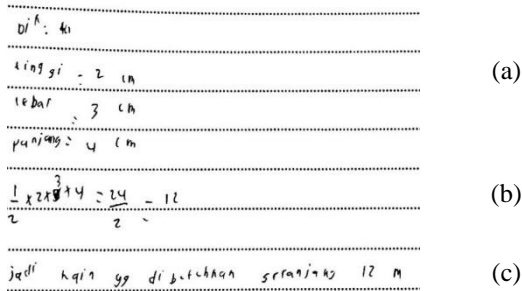 Dik:
tinggi = 2 cm (a)
lebar = 3 cm
panjang = 4 cm
1/2 x 2 x 3 x 4 = 24/2 = 12 (b)
jadi kain yg dibutuhkan sepanjang 12 m (c)